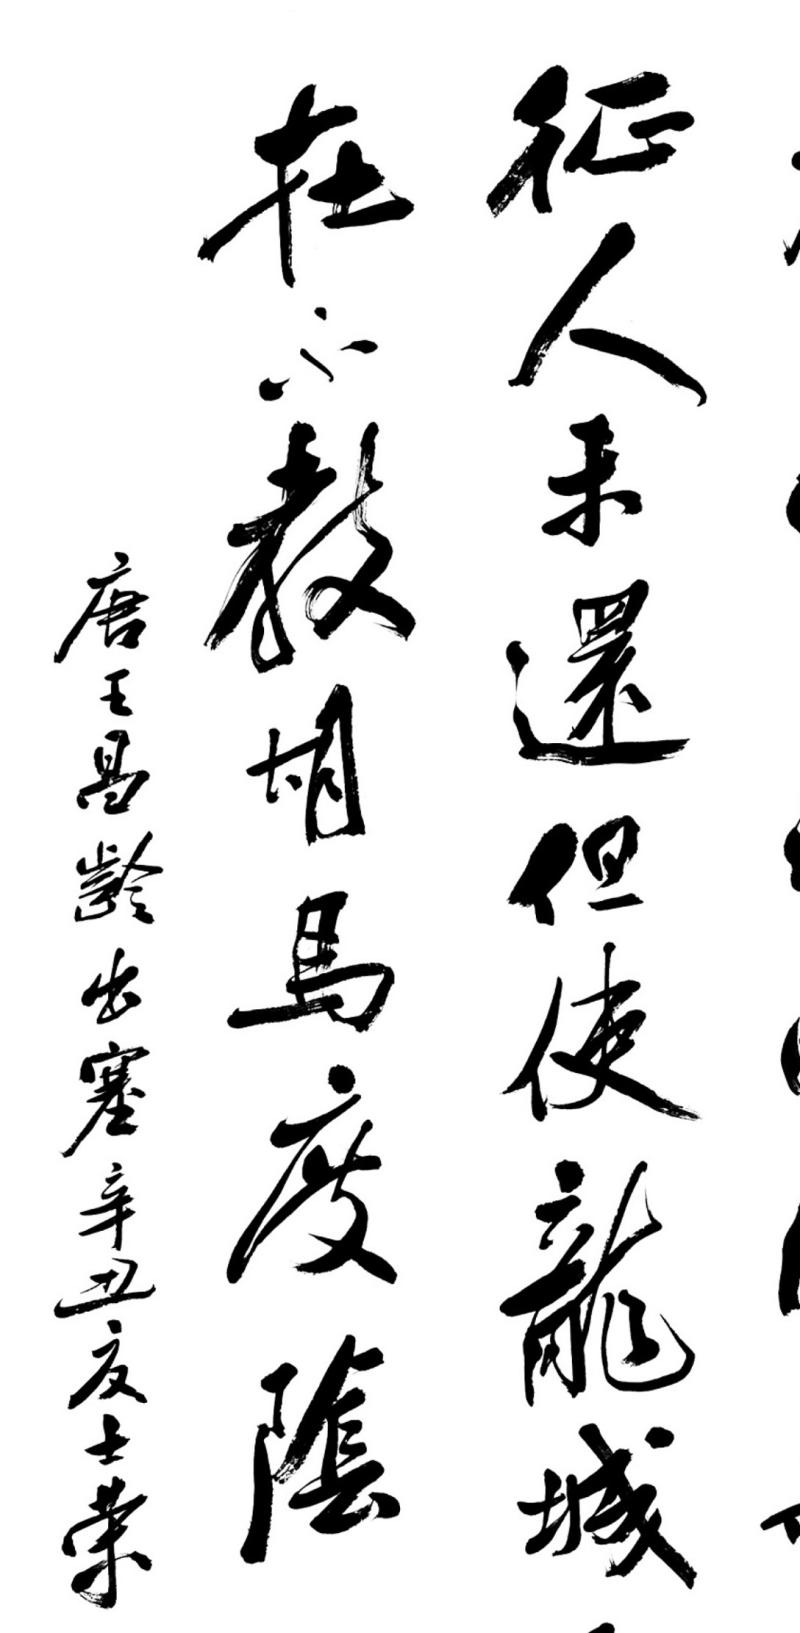 征人未還但使龍城
在不教胡馬度陰
唐王昌齡出塞辛丑夏士榮